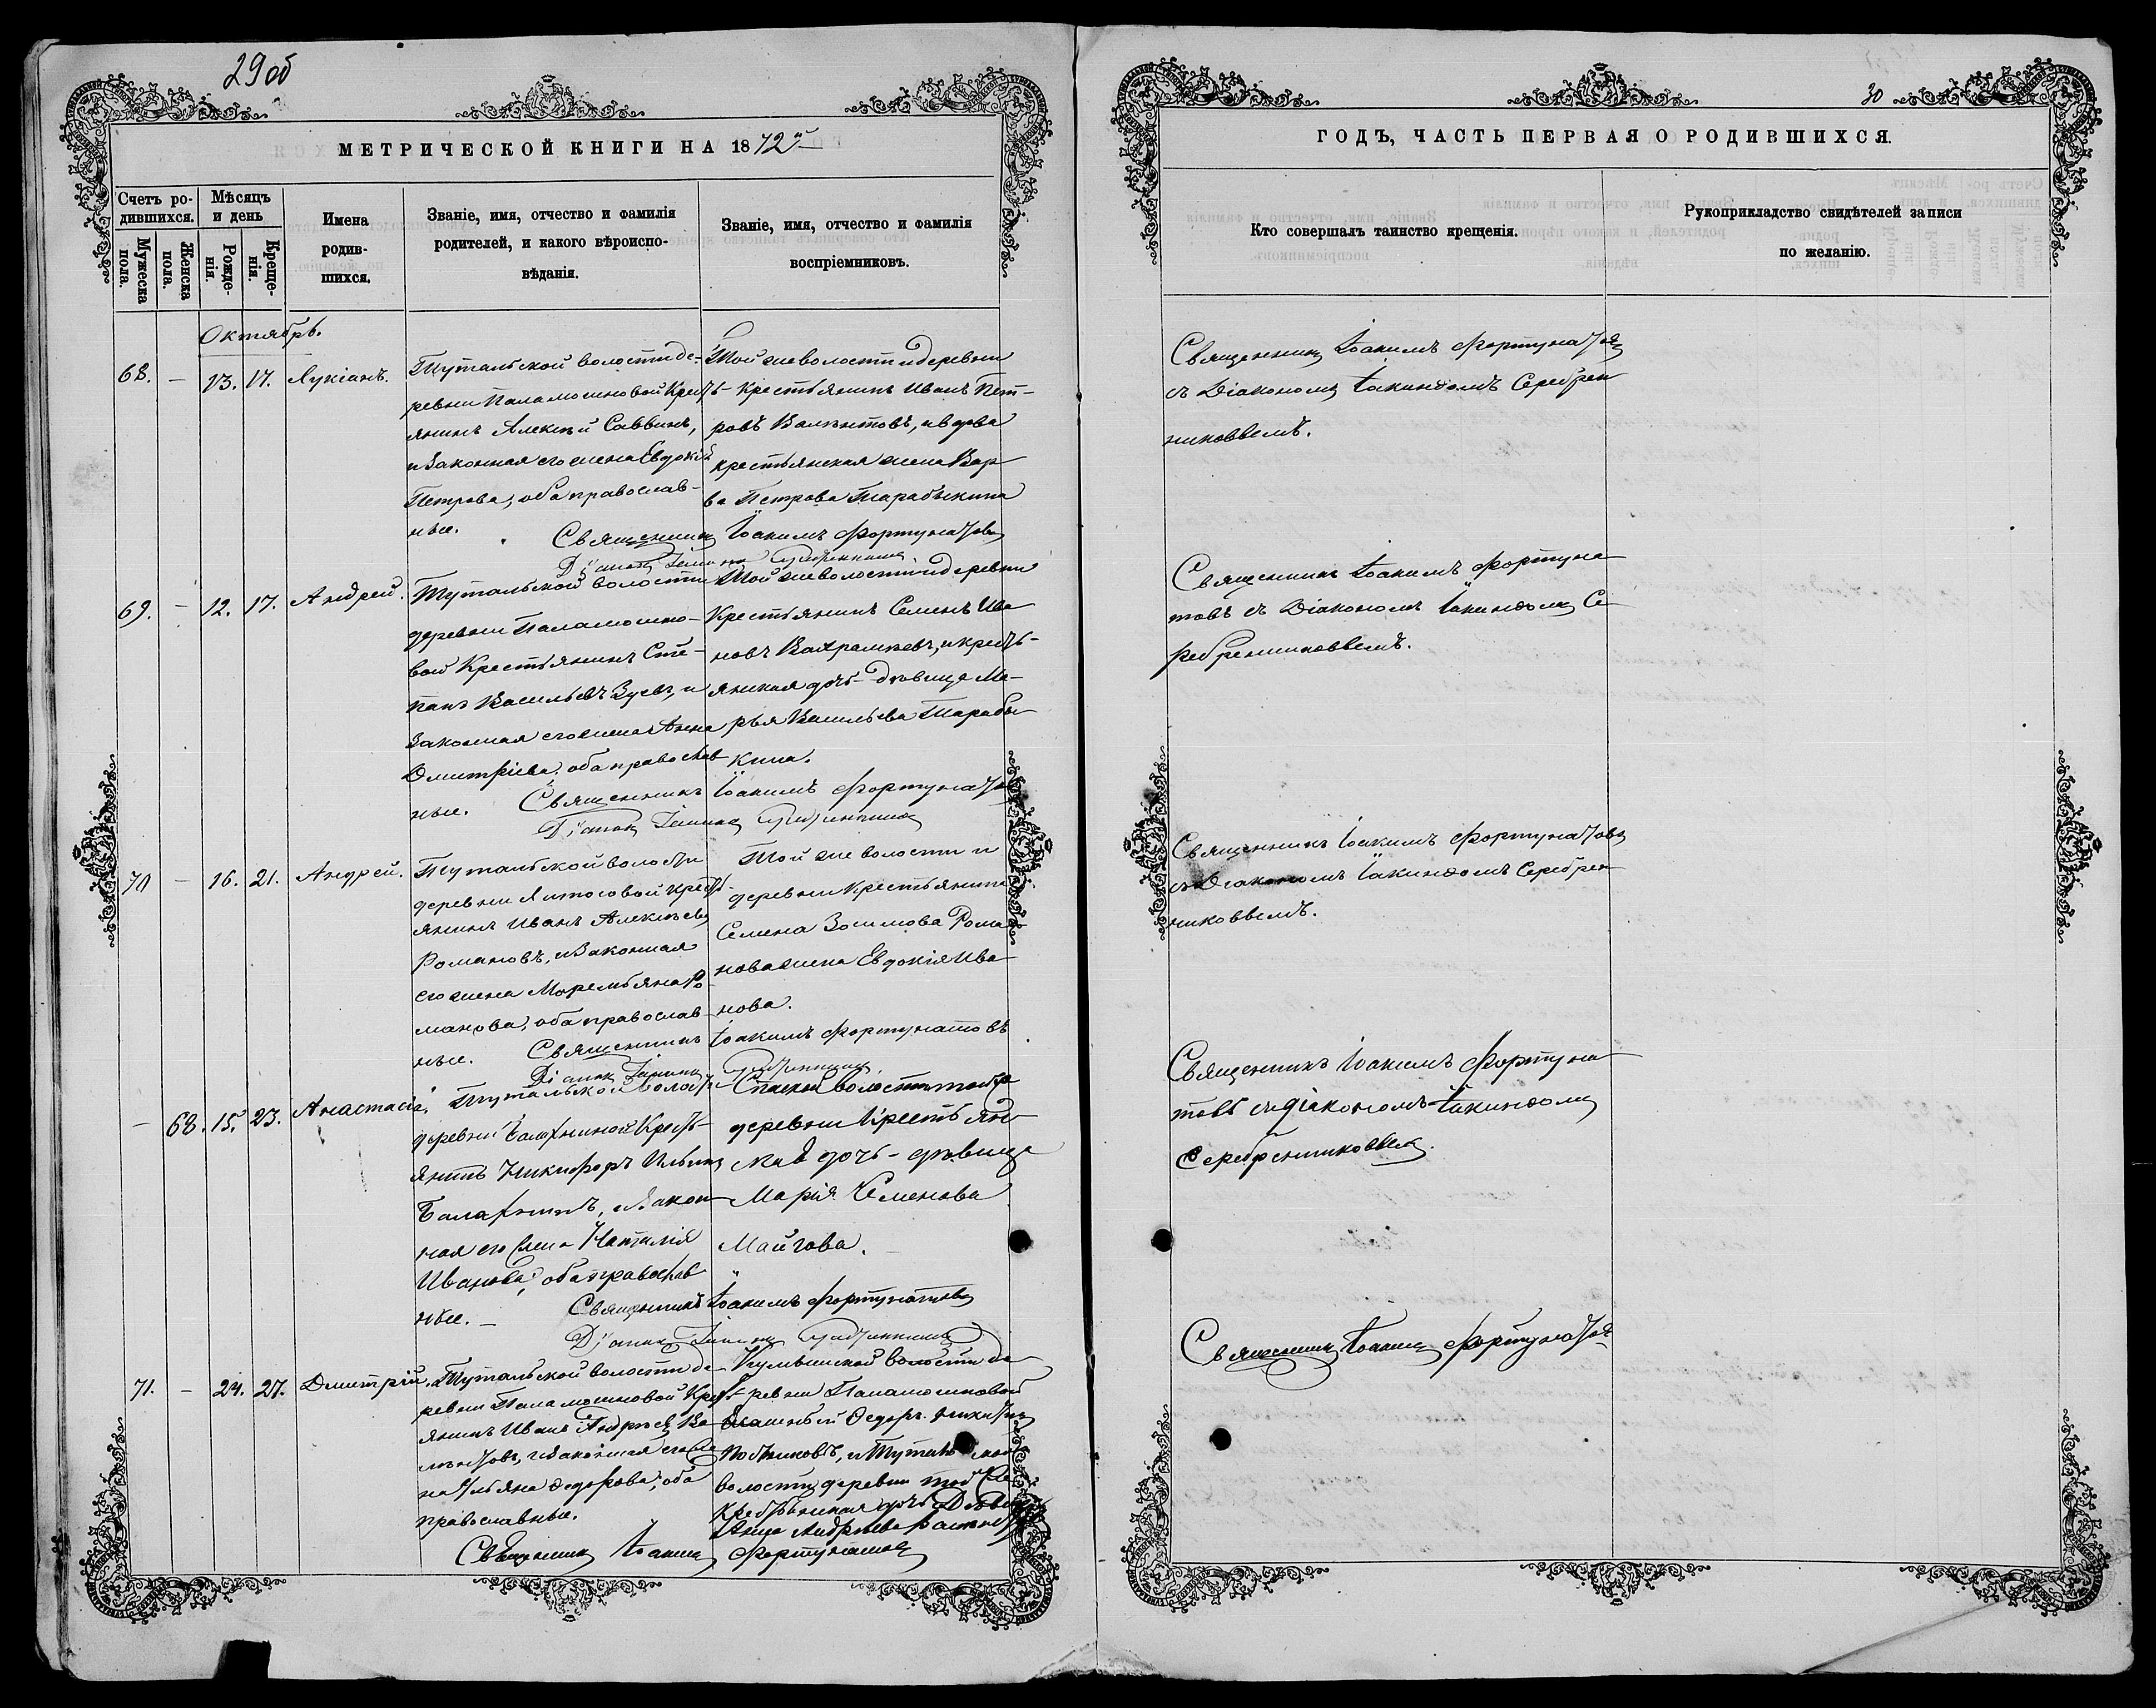 29 об
МЕТРИЧЕСКОЙ КНИГИ НА 1872й
Счетъ ро-
дившихся.
Мѣсяцъ
и день
Мужеска
пола.
Женска
пола.
Рожде-
нія.
Креще-
нія.
Имена
родив-
шихся.
Званіе, имя, отчество и фамилія
родителей, и какого вѣроиспо-
вѣданія.
Званіе, имя, отчество и фамилія
воспріемниковъ.
Октябрь.
68. – 13. 17. Лукіанъ.
Тутальской волости де-
ревни Паламошновой Кресть-
янинъ Алексѣй Саввинъ,
и Законная его жена Евдокія
Петрова, оба православ-
ные.
Той же волости и деревни
Крестьянинъ Иванъ Пет-
ровъ, и вдова
крестьянская жена Вар
ва Петрова Тарабыкина
Священникъ Іоакимъ Фортунатовъ
Діаконъ Іакинфъ Серебренниковъ
69. – 12. 17. Андрей.
Тутальской волости
деревни Паламошно-
вой Крестьянинъ Сте-
панъ Васильевъ Зуевъ, и
Законная его жена Анна
Дмитріева, оба православ
ные.
Той же волости и деревни
Крестьянинъ Семенъ Ива
новъ Вахрамѣевъ, и кресть-
янская дочь-дѣвица Ма-
рья Васильева Тарабы
кина.
Священникъ Іоакимъ Фортунатовъ
Діаконъ Іакинфъ Серебренниковъ
70 – 16. 21. Андрей.
Тутальской волости
деревни Крестъ-
янинъ Иванъ Алексѣевъ
Романовъ, и Законная
его жена Маремьяна Ро
манова, оба православ
ные.
Той же волости и
деревни Крестьянина
Семена Зосимова Рома
нова жена Евдокія Ива
нова.
Священникъ Іоакимъ Фортунатовъ
Діаконъ Іакинфъ Серебренниковъ
– 68. 15. 23. Анастасія.
Тутальской волости
деревни Балахниной Кресть-
янинъ Никифоръ Ильинъ
Балахнинъ, и Закон
ная его жена Наталія
Иванова, оба православ
ные. –
волости той же
деревни Крестьян
ская дочь-дѣвица
Марія Семенова
Майгова.
Священникъ Іоакимъ Фортунатовъ
Діаконъ Іакинфъ Серебренниковъ
71. – 24. 27. Дмитрій.
Тутальской волости де
ревни Паламошновой Кресть
янинъ Иванъ Андреевъ
и законная его же
на Ульяна Федорова, оба
православные.
волости де
ревни Паламошновой
Федоръ Никитинъ
и Тутальской
волости деревни той же
Крестьянская дочь Дѣвица
Анна Андреева
Священникъ Іоакимъ Фортунатовъ
30
ГОДЪ, ЧАСТЬ ПЕРВАЯ О РОДИВШИХСЯ.
Кто совершалъ таинство крещенія.
Рукоприкладство свидѣтелей записи
по желанію.
Священникъ Іоакимъ Фортунатовъ
съ Діакономъ Іакинфомъ Серебрен
никовымъ.
Священникъ Іоакимъ Фортуна
товъ съ Діакономъ Іакинфомъ Се
ребренниковымъ.
Священникъ Іоакимъ Фортунатовъ
съ Діакономъ Іакинфомъ Серебрен
никовымъ.
Священникъ Іоакимъ Фортуна
товъ съ діакономъ Іакинфомъ
Серебренниковымъ.
Священникъ Іоакимъ Фортунатовъ